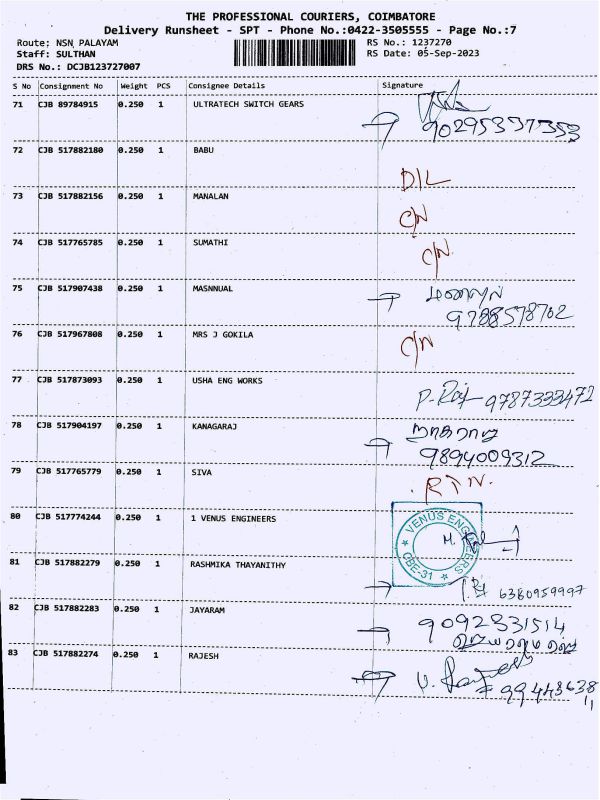 THE PROFESSIONAL COURIERS, COIMBATORE
Delivery Runsheet - SPT - Phone No.:0422-3505555 - Page No.:7
Route: NSN PALAYAM RS No.: 1237270
Staff: SULTHAN RS Date: 05-Sep-2023
DRS No.: DCJB123727007
S No Consignment No Weight PCS Consignee Details Signature
71 CJB 89784915 0.250 1 ULTRATECH SWITCH GEARS
90295337353
72 CJB 517882180 0.250 1 BABU
D/L
73 CJB 517882156 0.250 1 MANALAN
C/N
74 CJB 517765785 0.250 1 SUMATHI
C/N
75 CJB 517907438 0.250 1 MASNNUAL
9788578702
76 CJB 517967808 0.250 1 MRS J GOKILA
C/N
77 CJB 517873093 0.250 1 USHA ENG WORKS
P. Raj 9787333472
78 CJB 517904197 0.250 1 KANAGARAJ
நாகராஜ
9894009312
79 CJB 517765779 0.250 1 SIVA
RTN.
80 CJB 517774244 0.250 1 1 VENUS ENGINEERS
VENUS ENGINEERS
CBE-31
81 CJB 517882279 0.250 1 RASHMIKA THAYANITHY
6380959997
82 CJB 517882283 0.250 1 JAYARAM
9092831514
83 CJB 517882274 0.250 1 RAJESH
99443638
11